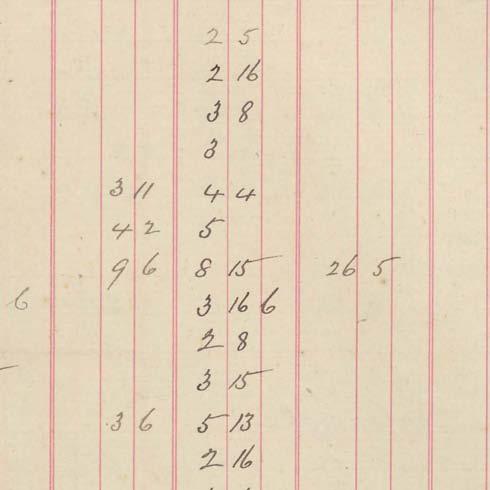 2 5
2 16
3 8
3
3 11 4 4
4 2 5
9 6 8 15 26 5
6 3 16 6
2 8
3 15
3 6 5 13
2 16